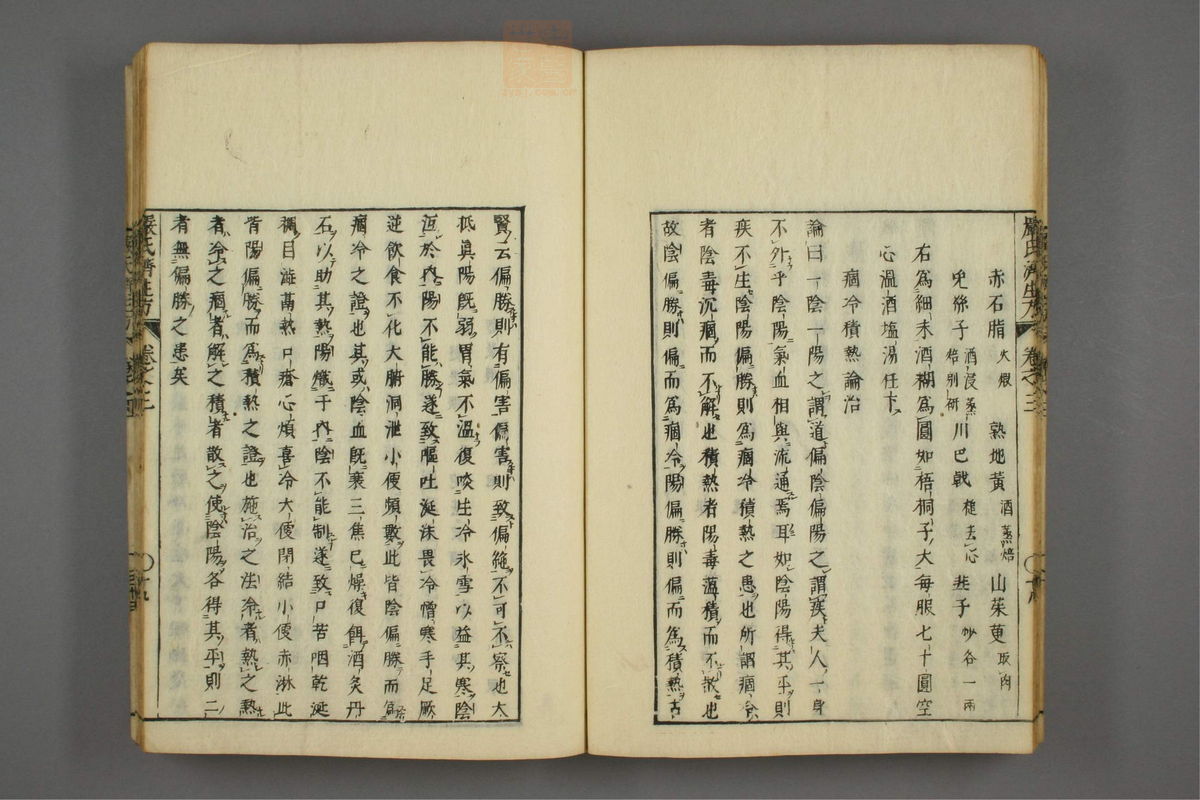 赤石脂火煅　熟地黄酒蒸焙　山茱萸取肉
兎絲子酒浸蒸焙別研　川巴戟槌去心　韭子炒各一兩
右為細末酒糊為圓如梧桐子大每服七十圓空
心溫酒塩湯任下
痼冷積熱論治
論曰一陰一陽之謂道偏陰偏陽之謂疾夫人一身
不外乎陰陽氣血相與流通焉耳如陰陽得其平則
疾不生陰陽偏勝則為痼冷積熱之患也所謂痼冷
者陰毒沉痼而不解也積熱者陽毒蘊積而不散也
故陰偏勝則偏而為痼冷陽偏勝則偏而為積熱古
嚴氏濟生方　卷之三　十八
賢云偏勝則有偏害偏害則致偏絶不可不察也大
抵真陽既弱胃氣不溫復啖生冷冰雪以益其寒陰
沍於內陽不能勝遂致嘔吐涎沫畏冷憎寒手足厥
逆飲食不化大腑洞泄小便頻數此皆陰偏勝而為
痼冷之證也其或陰血既衰三焦已燥復餌酒炙丹
石以助其熱陽熾于內陰不能制遂致口苦咽乾涎
稠目澁膈熱口瘡心煩喜冷大便閉結小便赤淋此
皆陽偏勝而為積熱之證也施治之法冷者熱之熱
者冷之痼者解之積者散之使陰陽各得其平則二
者無偏勝之患矣
嚴氏濟生方　卷之三　十九